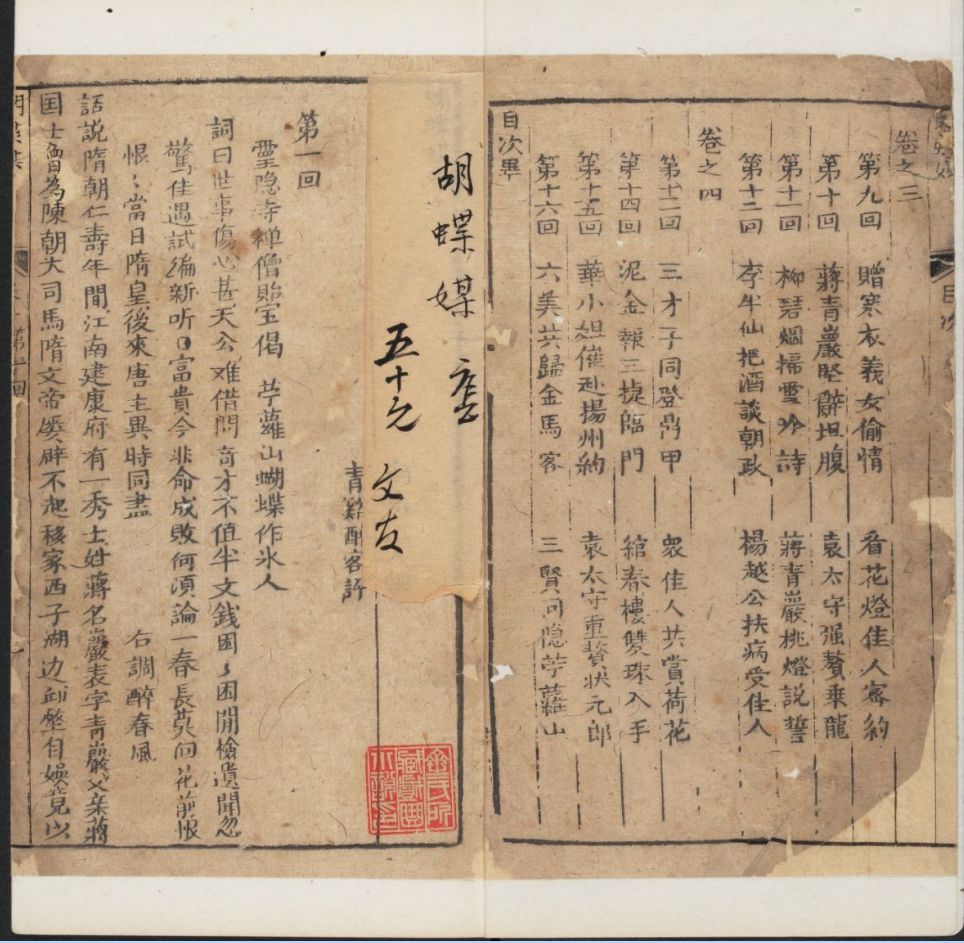 卷之三
第九回 贈寒衣義女偷情 看花燈佳人密約
第十回 蔣青巖堅辭坦腹 袁太守强贅乗龍
第十一回 柳碧烟掃雪吟詩 蔣青巖挑燈説誓
第十二回 李半仙把酒談朝政 楊越公扶病受佳人
卷之四
第十三回 三才子同登鼎甲 衆佳人共賞荷花
第十四回 泥金報三捷臨門 綰春樓雙珠入手
第十五回 華小姐催赴揚州約 袁太守重贅狀元郎
第十六回 六美共歸金馬客 三賢同隐苧蘿山
目次畢
胡蝶媒 店
五十元 文友
青谿醉客評
第一回
靈隐寺禅僧貽宝偈 苧蘿山蝴蝶作氷人
詞曰世事傷心甚天公难借問奇才不值半文錢困〻困閒檢遺聞忽
驚佳遇試编新听富貴今非命成敗何須論一春長莫向花前恨
恨〻當日隋皇後來唐主異時同盡 右調醉春風
話説隋朝仁壽年間江南建康府有一秀士姓蔣名巖表字青巖父亲蔣
国士曾為陳朝大司馬隋文帝屡辟不起移家西子湖边邱壑自娱見以